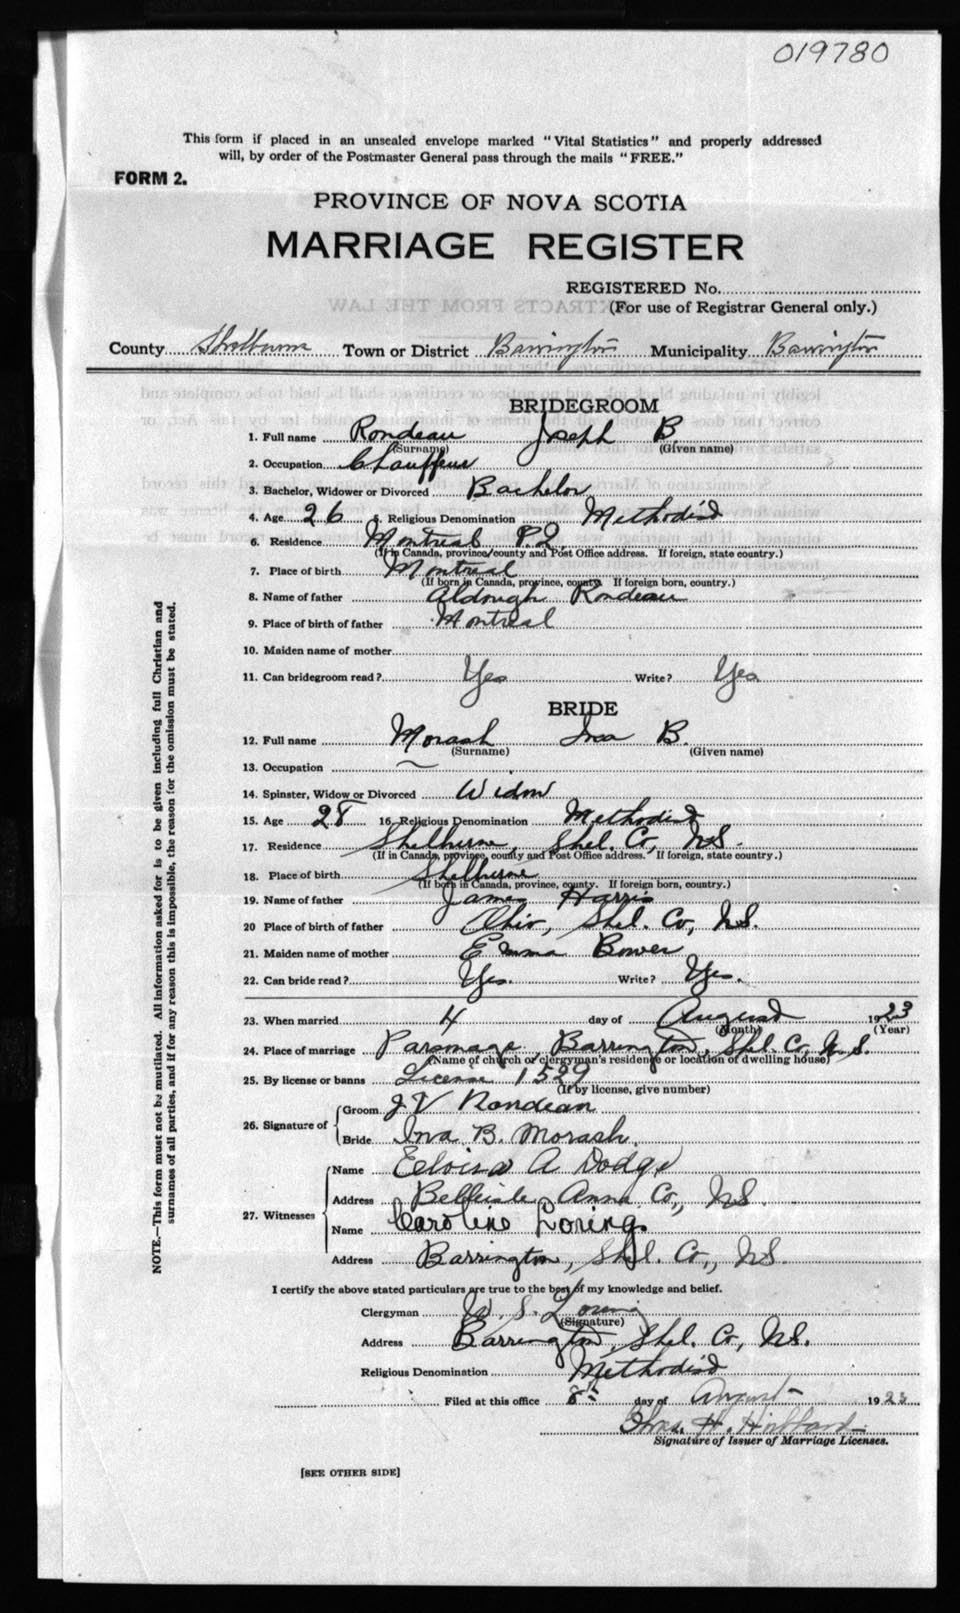 019780
This form if placed in an unsealed envelope marked "Vital Statistics" and properly addressed
will, by order of the Postmaster General pass through the mails "FREE."
FORM 2.
PROVINCE OF NOVA SCOTIA
MARRIAGE REGISTER
REGISTERED No.
(For use of Registrar General only.)
County Shelburne Town or District Barrington Municipality Barrington
BRIDEGROOM
1. Full name Rondeau Joseph B
(Surname) (Given name)
2. Occupation Chauffeur
3. Bachelor, Widower or Divorced Bachelor
4. Age 26 5. Religious Denomination Methodist
6. Residence Montreal P.Q.
(If in Canada, province/county and Post Office address. If foreign, state country.)
7. Place of birth Montreal
(If born in Canada, province, county. If foreign born, country.)
8. Name of father Rondeau
9. Place of birth of father Montreal
10. Maiden name of mother
11. Can bridegroom read? Yes Write? Yes
BRIDE
12. Full name Morash Iva B.
(Surname) (Given name)
13. Occupation —
14. Spinster, Widow or Divorced Widow
15. Age 28 16. Religious Denomination Methodist
17. Residence Shelburne, Shel. Co, N.S.
(If in Canada, province, county and Post Office address. If foreign, state country.)
18. Place of birth Shelburne
(If born in Canada, province, county. If foreign born, country.)
19. Name of father James Harris
20 Place of birth of father Ohio, Shel. Co, N.S.
21. Maiden name of mother Emma Bower
22. Can bride read? Yes. Write? Yes.
23. When married 4 day of August 1923
(Month) (Year)
24. Place of marriage Parsonage, Barrington, Shel. Co, N.S.
(Name of church or clergyman's residence or location of dwelling house)
25. By license or banns License 1529
(If by license, give number)
26. Signature of Groom J V Rondeau
Bride Iva B. Morash.
27. Witnesses Name A Dodge
Address Belleisle, Anna Co., N.S.
Name Caroline Loring.
Address Barrington, Shel. Co., N.S.
I certify the above stated particulars are true to the best of my knowledge and belief.
Clergyman W. S. Loring
(Signature)
Address Barrington, Shel. Co, N.S.
Religious Denomination Methodist
Filed at this office 8th day of August 1923
H.
Signature of Issuer of Marriage Licenses.
[SEE OTHER SIDE]
NOTE.—This form must not be mutilated. All information asked for is to be given including full Christian and
surnames of all parties, and if for any reason this is impossible, the reason for the omission must be stated.